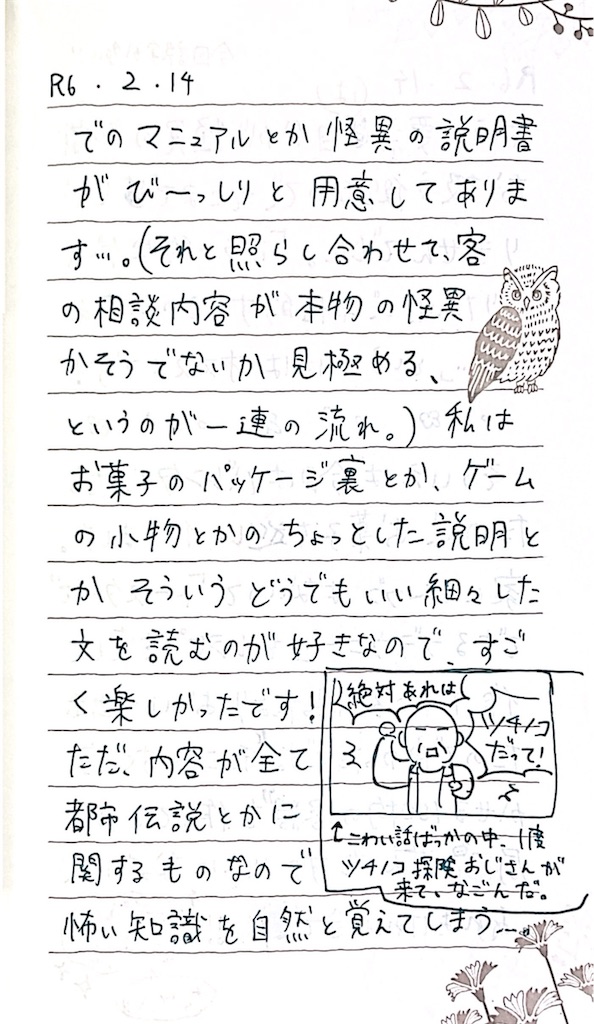 R6.2.14
でのマニュアルとか怪異の説明書
がび〜っしりと用意してありま
す…。(それと照らし合わせて、客
の相談内容が本物の怪異
かそうでないか見極める、
というのが一連の流れ。)私は
お菓子のパッケージ裏とか、ゲーム
の小物とかのちょっとした説明と
かそういうどうでもいい細々した
文を読むのが好きなので、すご
く楽しかったです!
ただ、内容が全て
都市伝説とかに
関するものなので
怖い知識を自然と覚えてしまう…。
絶対あれは
ツチノコ
だって!
↑こわい話ばっかの中、1度
ツチノコ探険おじさんが
来て、なごんだ。